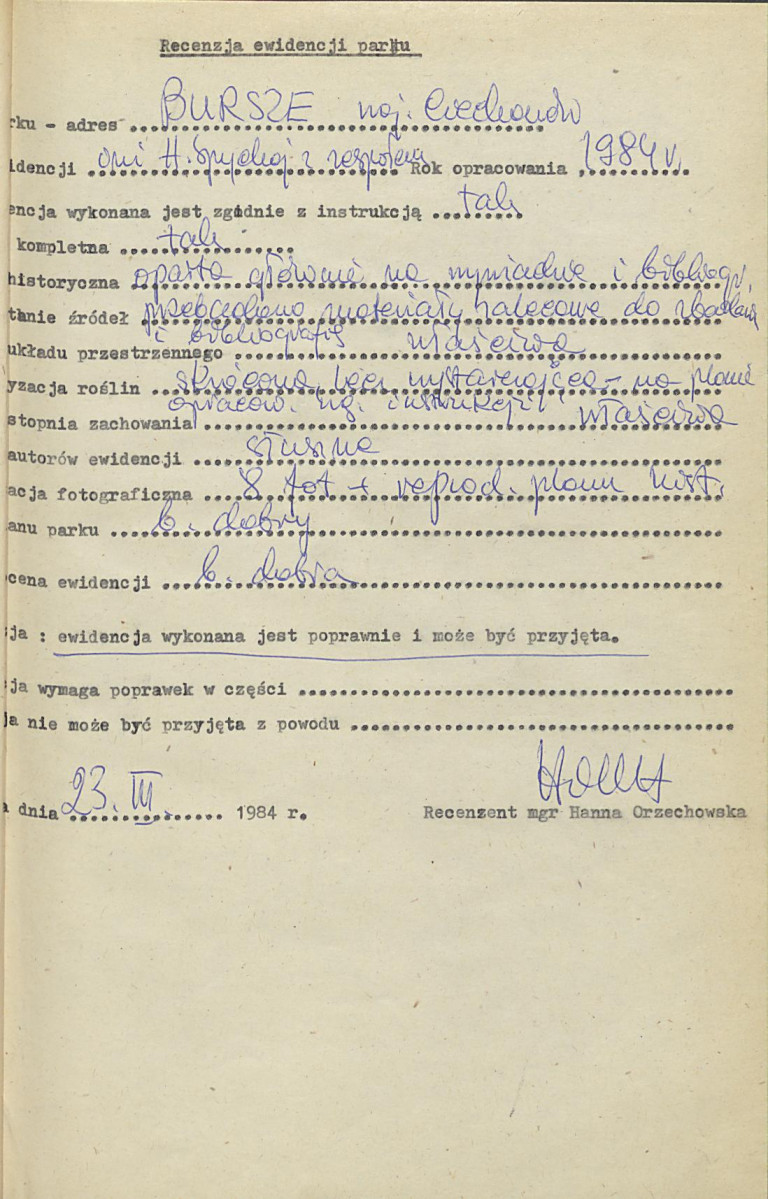 Recenzja ewidencji parku
rku - adres BURSZE woj. Ciechanów
idencji oni H. Spychaj z zespołem Rok opracowania 1984 r.
encja wykonana jest zgodnie z instrukcją tak
kompletna tak
historyczna oparta głównie na wywiadzie i bibliogr.
tanie źródeł materiały zalecone do zbadania
i bibliografię
układu przestrzennego właściwa
yzacja roślin skrócona, lecz wystarczająca - na planie
opracow. wg. instrukcji
stopnia zachowania właściwa
autorów ewidencji słuszne
acja fotograficzna 8 fot + reprod. planu hist.
anu parku b. dobry
cena ewidencji b. dobra
ja : ewidencja wykonana jest poprawnie i może być przyjęta.
ja wymaga poprawek w części
ja nie może być przyjęta z powodu
dnia 23. III. 1984 r.
Recenzent mgr Hanna Orzechowska